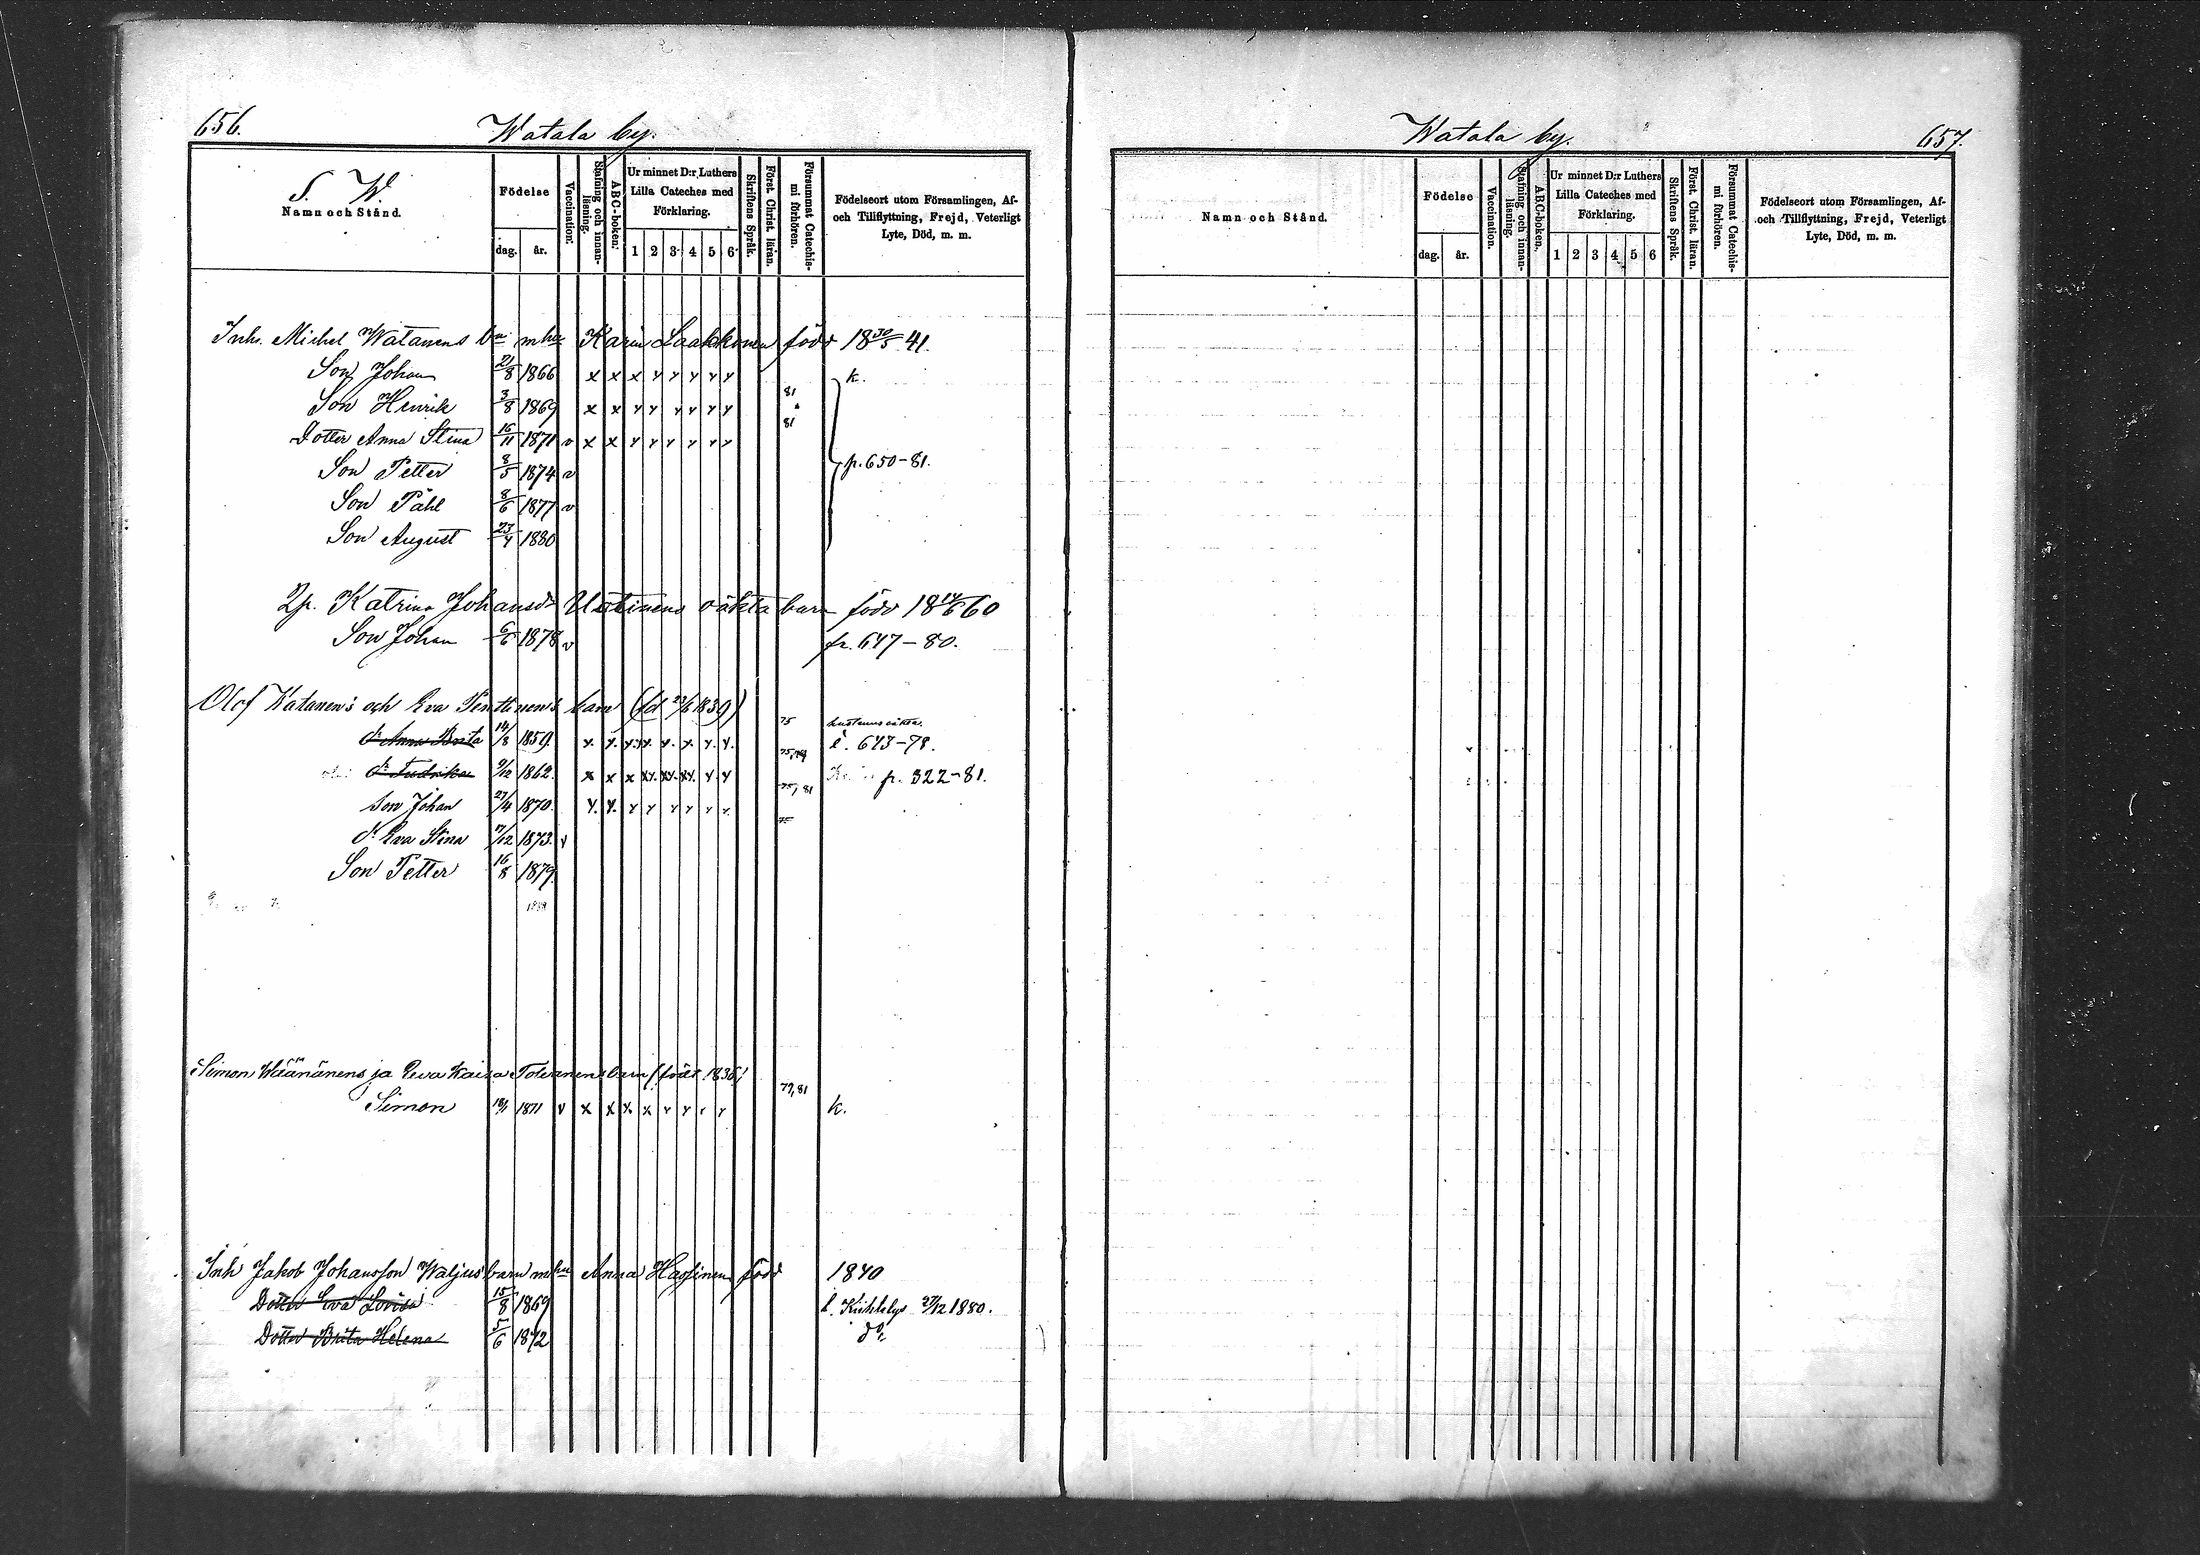 656.
Watala by.
S. W.
Namn och Stånd.
Födelse
dag.
år.
Vaccination.
Stafning och innan-läsning.
ABC-boken.
Ur minnet D:r Luthers
Lilla Cateches med
Förklaring.
1 2 3 4 5 6
Skriftens Språk.
Först. Christ. läran.
Försummat Catechis-mi förhören.
Födelseort utom Församlingen, Af-
och Tillflyttning, Frejd, Veterligt
Lyte, Död, m. m.
Inh. Michel Watanens bn m hu Karin Laakkonen född 18 30/5 41.
Son Johan 21/8 1866 x x x y y y y y k.
81
Son Henrik 3/8 1869 x x y y y y y y
81
Dotter Anna Stina 16/11 1871 v x x y y y y y y
Son Petter 8/5 1874 v p. 650-81.
Son Påhl 8/6 1877 v
Son August 23/4 1880
Johansdr oäkta barn född 18 14/6 60
Son Johan 6/6 1878 v fr. 647-80.
Olof och Eva barn (fd 23/6 1839)
75
d. Anna Brita 14/8 1859. x. y. y. y. y. y. y. y. 643-78.
75, 79
d. Fredrika 9/12 1862. x x x xy. xy. xy. y. y p. 322-81.
75, 81
Son Johan 27/4 1870. y. y. y y y y y y.
75
d. Eva Stina 17/12 1873. v
Son Petter 16/8 1879.
Simon Wäänänens ja Eeva Kaisa Tolvanens barn (född 1836)
79, 81
Simon 18/1 1871 v x x x x y y y y k.
Inh Jakob Johansson Waljus barn m hu Anna Hassinen född 1840
Dotter Eva Lovisa 15/8 1869 27/12 1880.
Dotter Brita Helena 5/6 1872 do
Watala by.
657.
Namn och Stånd.
Födelse
dag.
år.
Vaccination.
Stafning och innan-läsning.
ABC-boken.
Ur minnet D:r Luthers
Lilla Cateches med
Förklaring.
1 2 3 4 5 6
Skriftens Språk.
Först. Christ. läran.
Försummat Catechis-mi förhören.
Födelseort utom Församlingen, Af-
och Tillflyttning, Frejd, Veterligt
Lyte, Död, m. m.